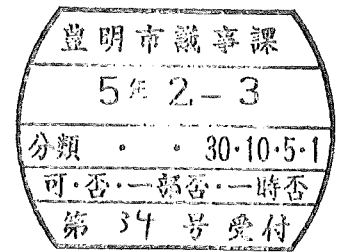 豊明市議事課
5年2-3
分類 ・ ・ 30・10・5・1
可・否・一部否・一時否
第 34 号受付